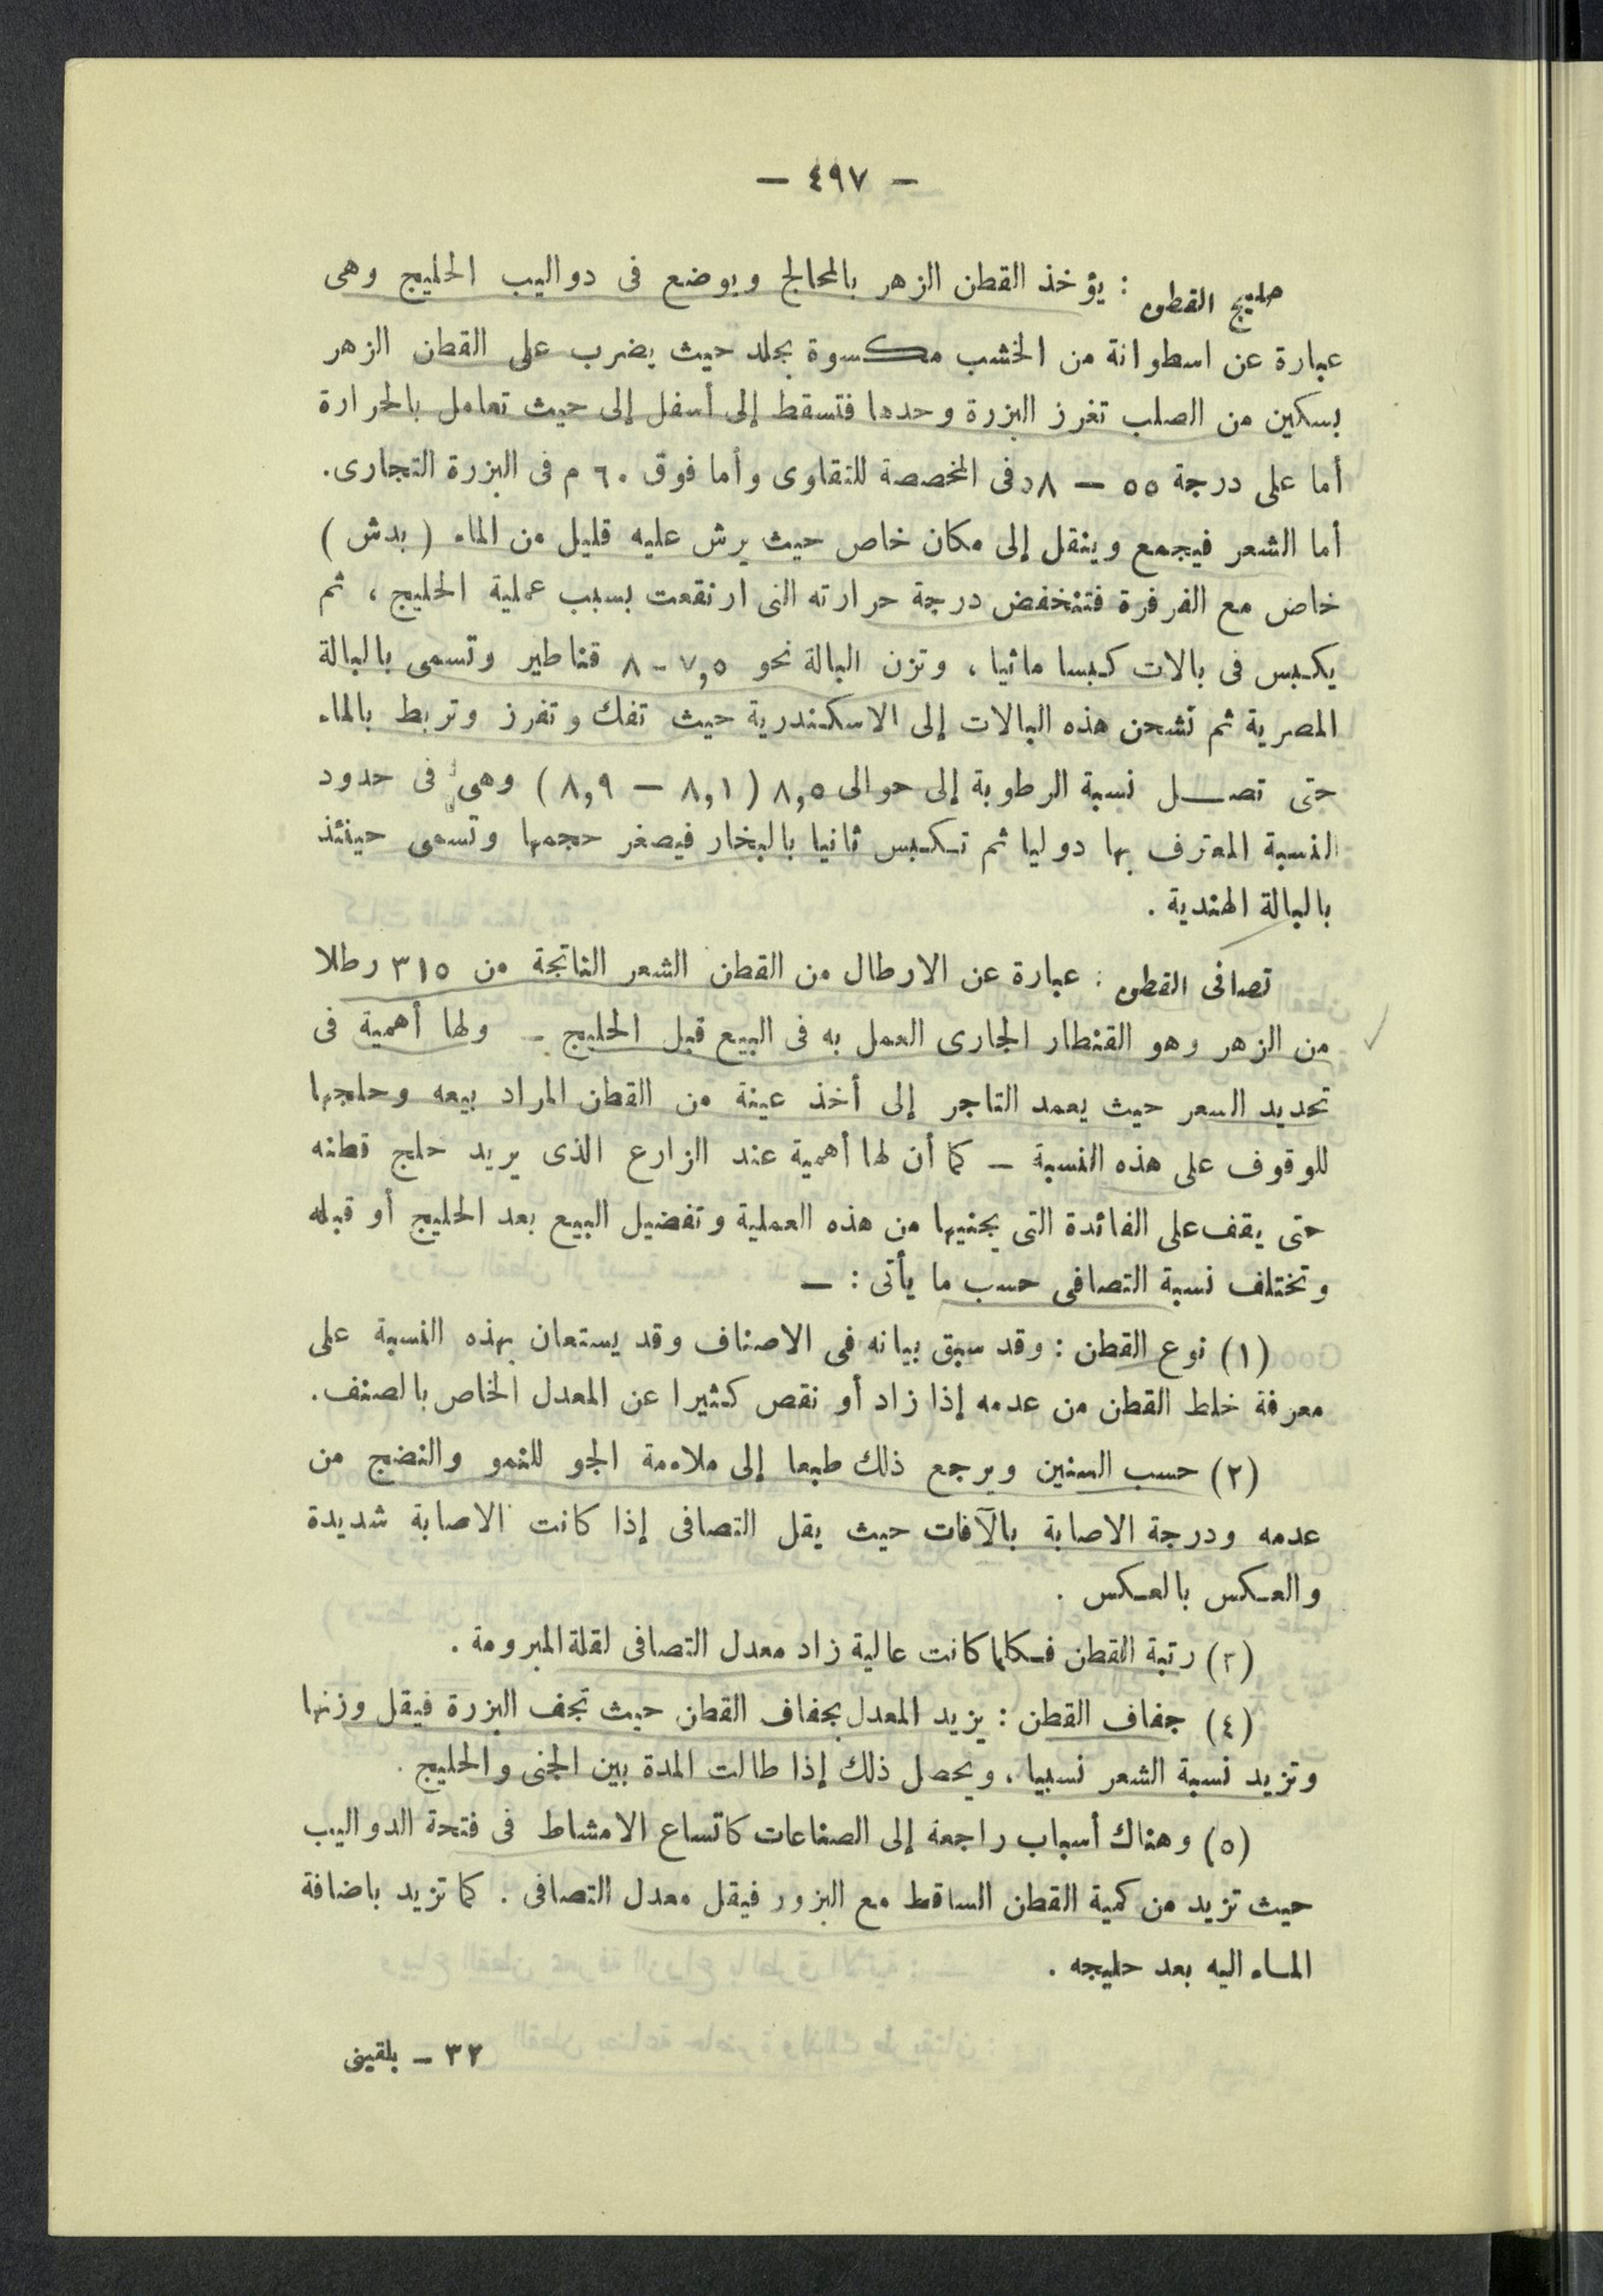 — ٤٩٧ —
حليج القطن : يؤخذ القطن الزهر بالمحالج ويوضع فى دواليب الحليج وهى
عبارة عن اسطوانة من الخشب مكسوة بجلد حيث يضرب على القطن الزهر
بسكين من الصلب تغرز البزرة وحدها فتسقط إلى أسفل إلى حيث تعامل بالحرارة
أما على درجة ٥٥ — ٥٨ فى المخصصة للتقاوى وأما فوق ٦٠ م فى البزرة التجارى.
أما الشعر فيجمع وينقل إلى مكان خاص حيث يرش عليه قليل من الماء ( بدش )
خاص مع الفرفرة فتنخفض درجة حرارته التى ارتفعت بسبب عملية الحليج ، ثم
يكبس فى بالات كبسا مائيا ، وتزن البالة نحو ٧,٥ - ٨ قناطير وتسمى بالبالة
المصرية ثم تشحن هذه البالات إلى الاسكندرية حيث تفك وتفرز وتربط بالماء
حتى تصل نسبة الرطوبة إلى حوالى ٨,٥ ( ٨,١ — ٨,٩ ) وهى فى حدود
النسبة المعترف بها دوليا ثم تكبس ثانيا بالبخار فيصغر حجمها وتسمى حينئذ
بالبالة الهندية .
تصافى القطن : عبارة عن الارطال من القطن الشعر الناتجة من ٣١٥ رطلا
من الزهر وهو القنطار الجارى العمل به فى البيع قبل الحليج - ولها أهمية فى
تحديد السعر حيث يعمد التاجر إلى أخذ عينة من القطن المراد بيعه وحلجها
للوقوف على هذه النسبة — كما أن لها أهمية عند الزارع الذى يريد حلج قطنه
حتى يقف على الفائدة التى يجنيها من هذه العملية وتفضيل البيع بعد الحليج أو قبله
وتختلف نسبة التصافى حسب ما يأتى : —
(١) نوع القطن : وقد سبق بيانه فى الاصناف وقد يستعان بهذه النسبة على
معرفة خلط القطن من عدمه إذا زاد أو نقص كثيرا عن المعدل الخاص بالصنف .
(٢) حسب السنين ويرجع ذلك طبعا إلى ملاءمة الجو للنمو والنضج من
عدمه ودرجة الاصابة بالآفات حيث يقل التصافى إذا كانت الاصابة شديدة
والعكس بالعكس .
(٣) رتبة القطن فكلما كانت عالية زاد معدل التصافى لقلة المبرومة .
(٤) جفاف القطن : يزيد المعدل بجفاف القطن حيث تجف البزرة فيقل وزنها
وتزيد نسبة الشعر نسبيا ، ويحصل ذلك إذا طالت المدة بين الجنى والحليج .
(٥) وهناك أسباب راجعة إلى الصناعات كاتساع الامشاط فى فتحة الدواليب
حيث تزيد من كمية القطن الساقط مع البزور فيقل معدل التصافى . كما تزيد باضافة
الماء اليه بعد حليجه .
٣٢ — بلقينى